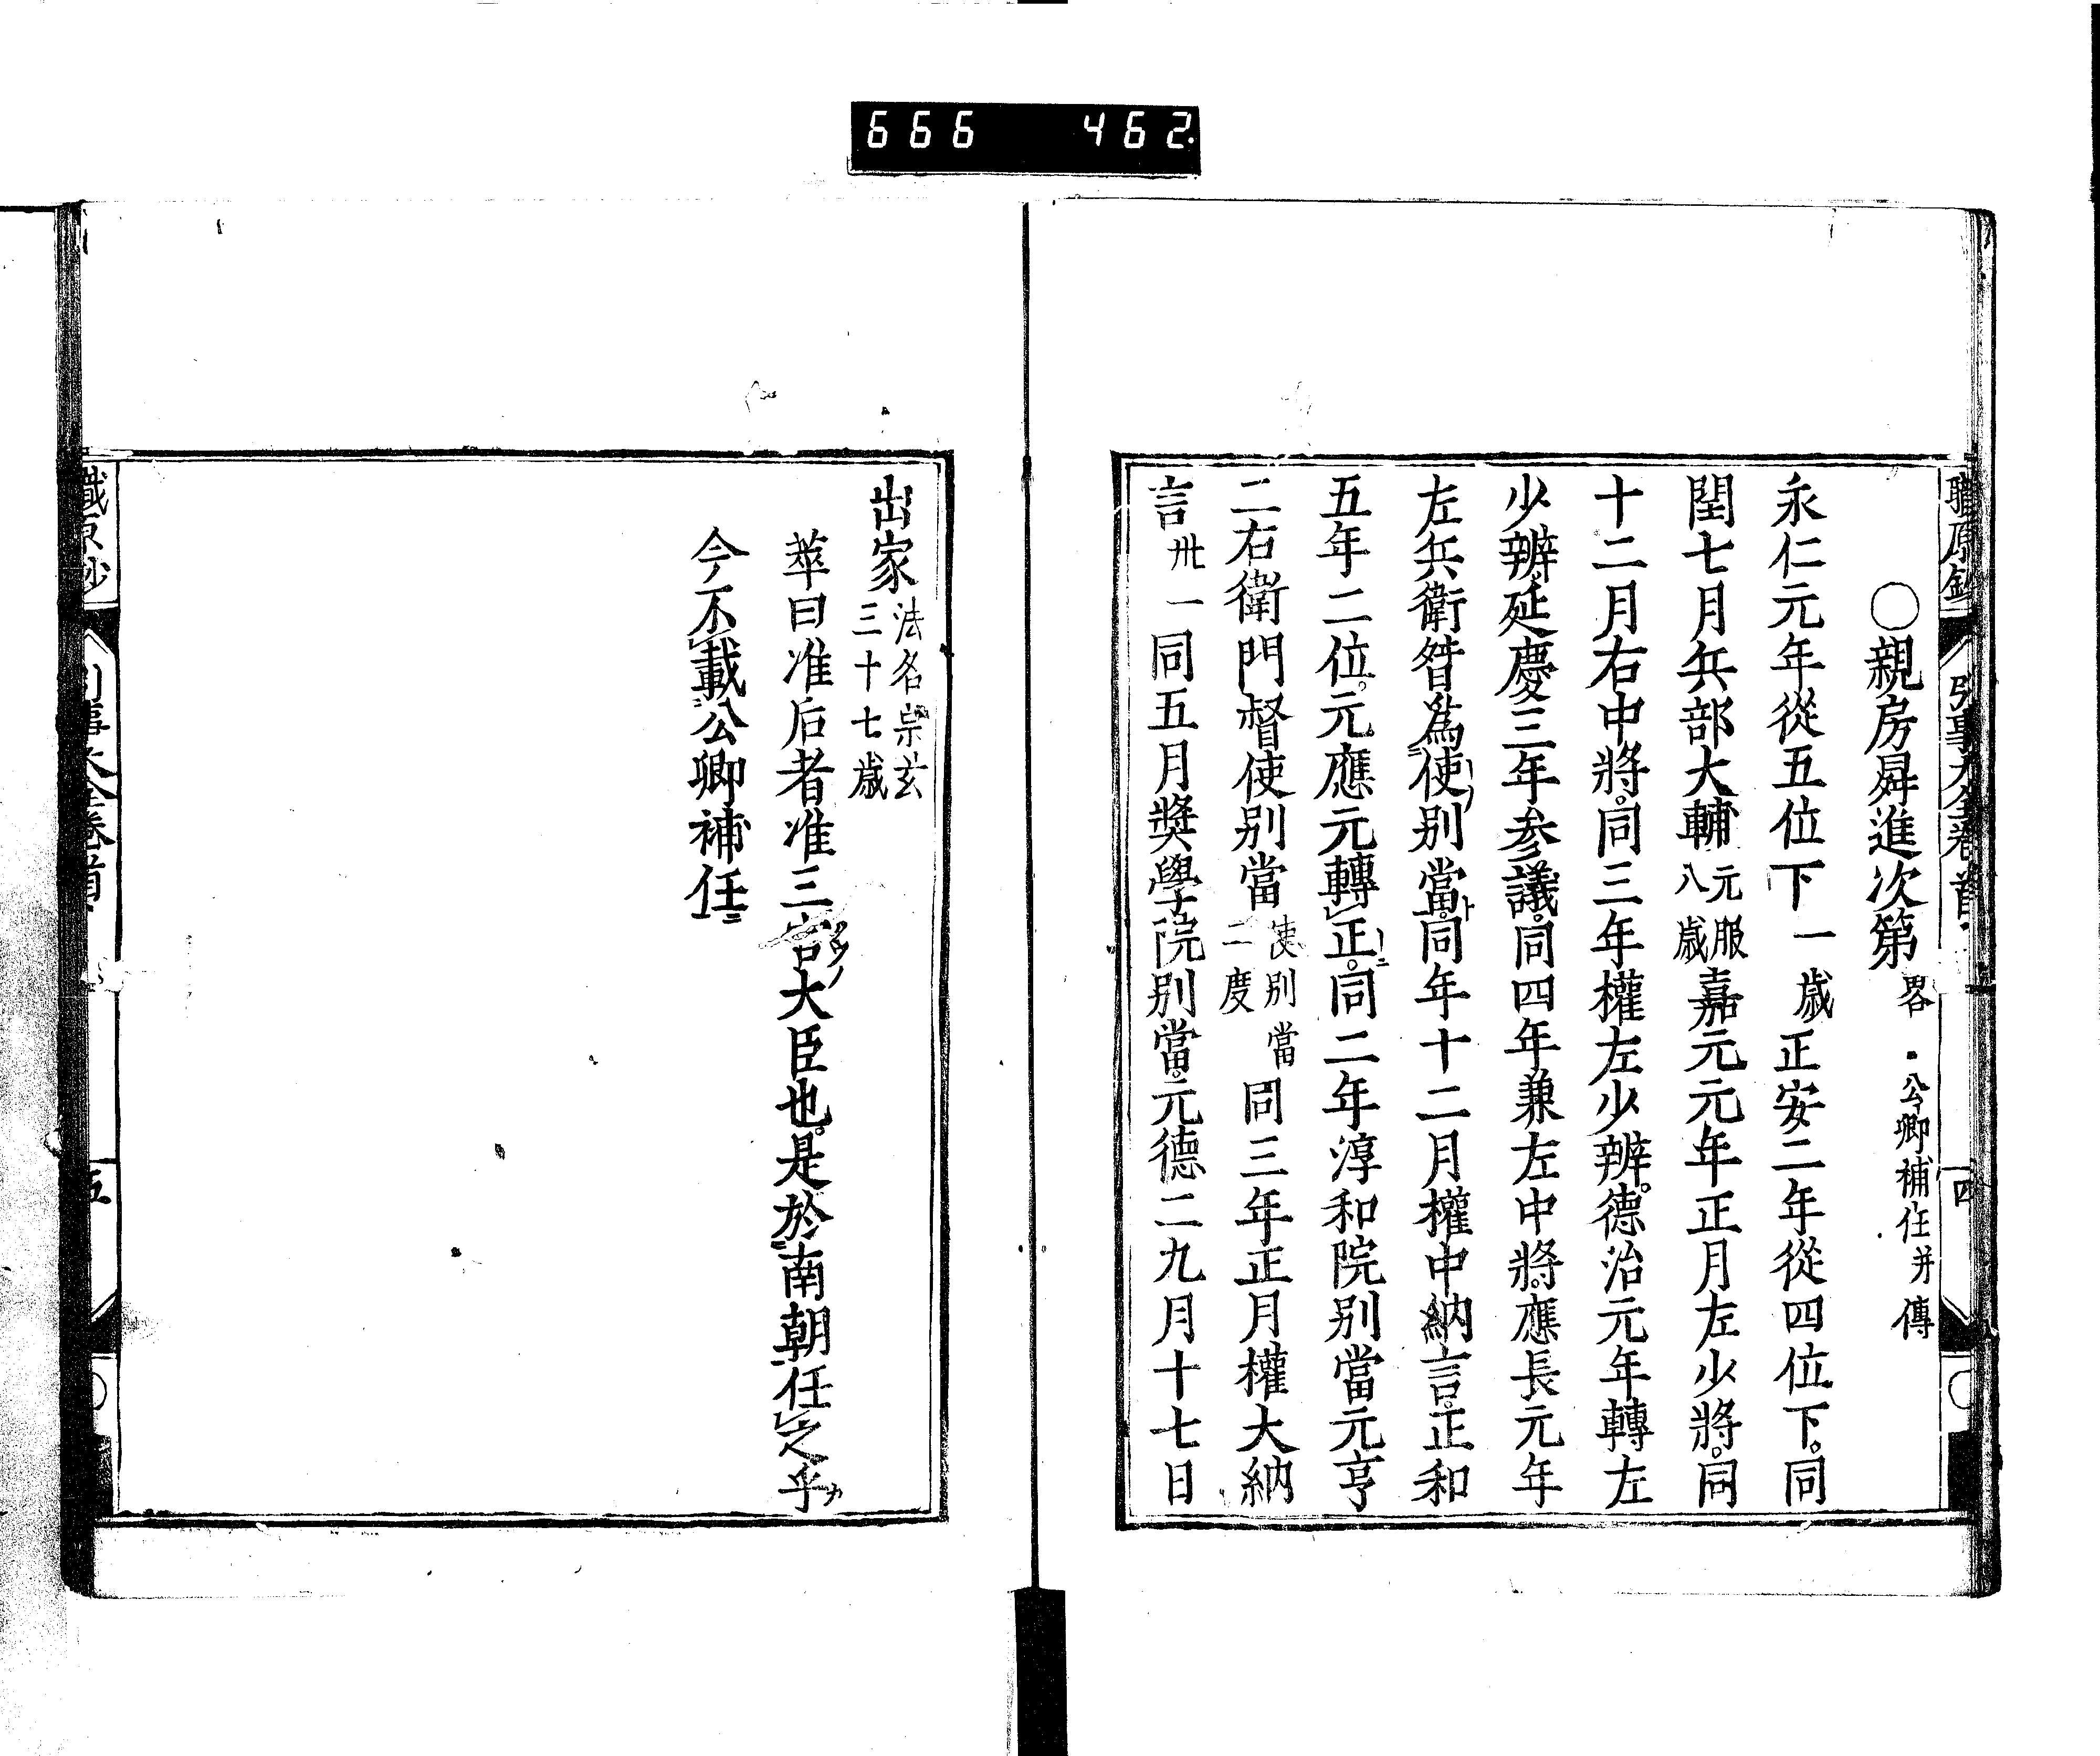 666 462
職原鈔 引事大全卷首 四
○親房昇進次第 畧 公卿補任并傳
永仁元年從五位下 一歳 正安二年從四位下。同
閏七月兵部大輔 元服 八歳 嘉元元年正月左少將。同
十二月右中將。同三年權左少辨。德治元年轉左
少辨延慶三年参議。同四年兼左中將。應長元年
左兵衛督爲使別當。同年十二月權中納言。正和
五年二位。元應元轉正。同二年淳和院別當元亨
二右衛門督使別當 使別當 二度 同三年正月權大納
言 卅一 同五月奬學院別當。元德二九月十七日
出家 法名宗玄 三十七歳
萃曰准后者准三宮大臣也。是於南朝任之乎
今不載公卿補任
職原鈔 引事大全卷首 五